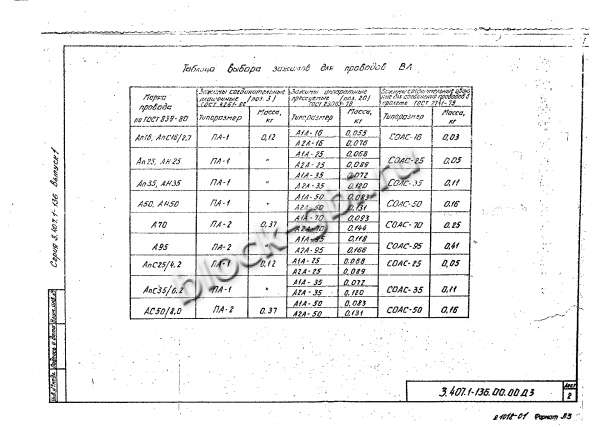 Таблица выбора зажимов для проводов ВЛ
Марка провода по ГОСТ 839-80
Зажимы соединительные плашечные (поз. 3) ГОСТ 4261-82
Зажимы аппаратные прессуемые (поз. 20) ГОСТ 23065-78
Зажимы соединительные
для соединения проводов в пролете ГОСТ
Типоразмер Масса, кг Типоразмер Масса, кг Типоразмер Масса, кг
Ап16, АпС16/2,7 ПА-1 0,12 А1А-16 0,055 СОАС-16 0,03
А2А-16 0,076
Ап25, АН25 ПА-1 " А1А-25 0,068 СОАС-25 0,05
А2А-25 0,089
Ап35, АН35 ПА-1 " А1А-35 0,072 СОАС-35 0,11
А2А-35 0,120
А50, АН50 ПА-1 " А1А-50 0,083 СОАС-50 0,16
А2А-50 0,131
А70 ПА-2 0,37 А1А-70 0,093 СОАС-70 0,25
А2А-70 0,144
А95 ПА-2 " А1А-95 0,118 СОАС-95 0,41
А2А-95 0,166
АпС25/4,2 ПА-1 0,12 А1А-25 0,068 СОАС-25 0,05
А2А-25 0,089
АпС35/6,2 ПА-1 " А1А-35 0,072 СОАС-35 0,11
А2А-35 0,120
АС50/8,0 ПА-2 0,37 А1А-50 0,083 СОАС-50 0,16
А2А-50 0,131
Серия 3.407.1-136 Выпуск 1
3.407.1-136.00.00 Д3
Лист
2
21018-01 Формат А3